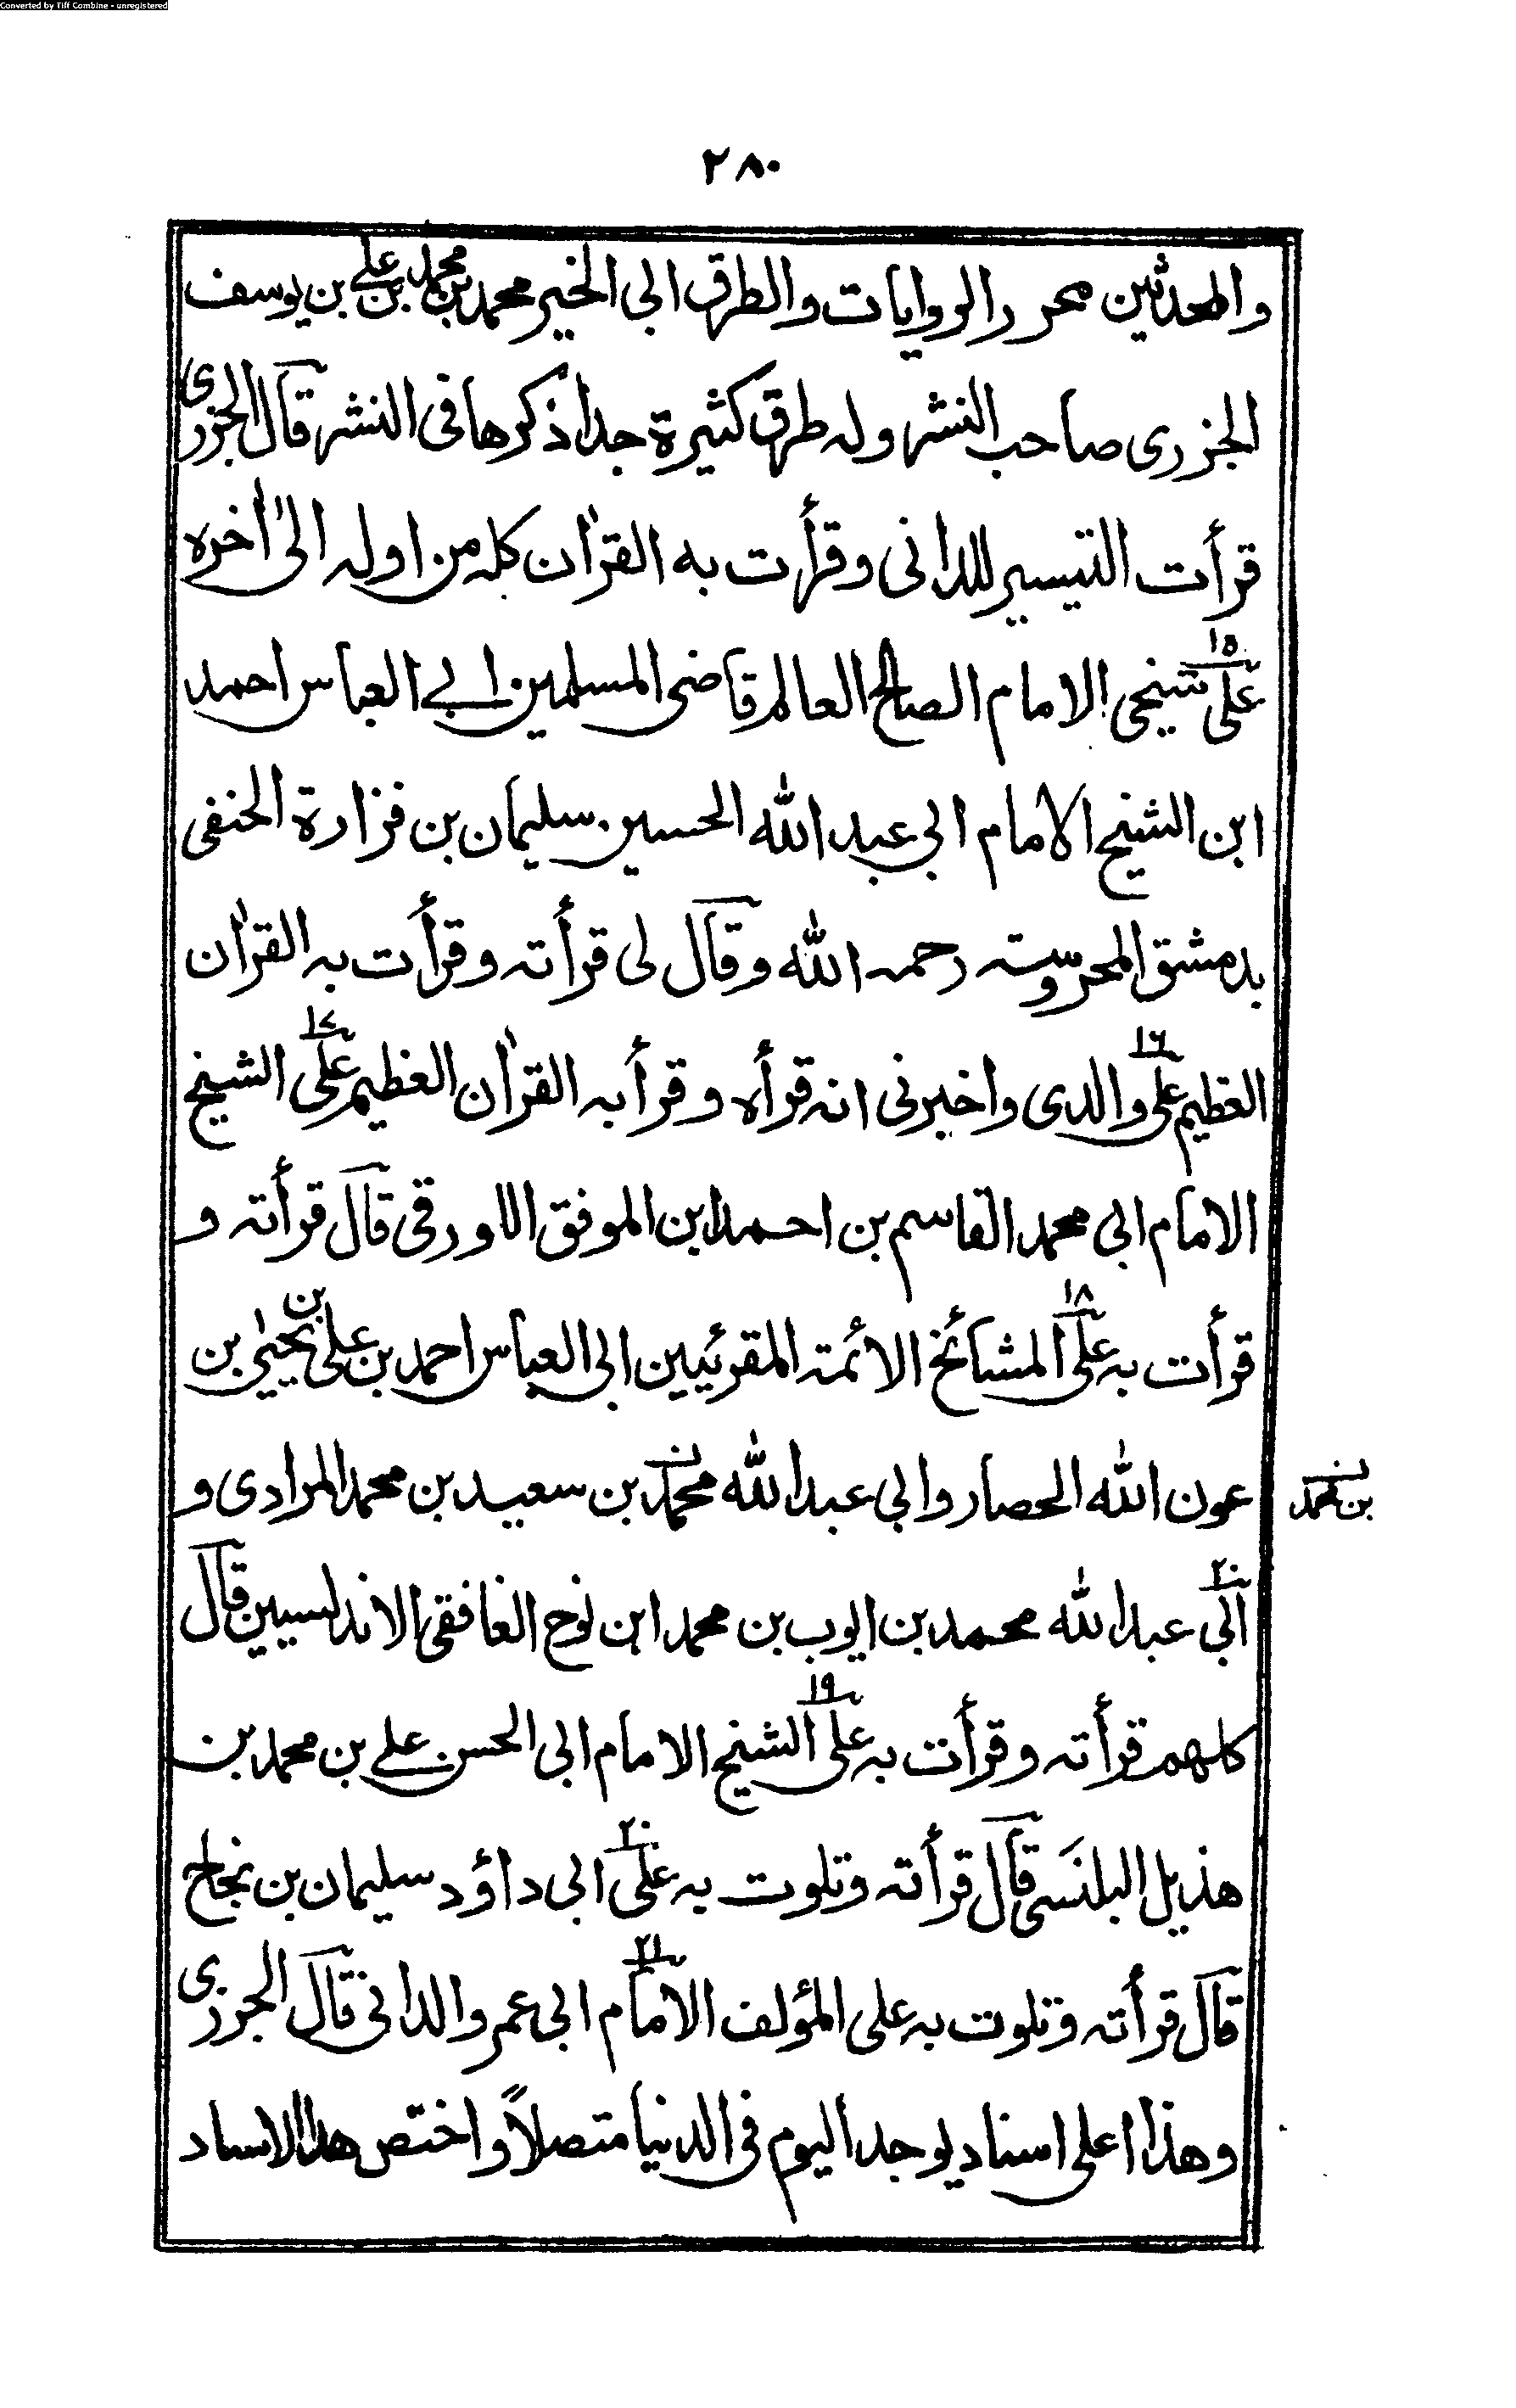 Converted by Tiff Combine - unregistered
٢٨٠
والمحدثين محرر الروايات والطرق ابى الخير محمد بن محمد بن على بن يوسف
الجزرى صاحب النشر وله طرق كثيرة جدا ذكرها فى النشر قال الجزرى
قرأت التيسير للدانى وقرأت به القرآن كله من اوله الى اٰخره
١٥
على شيخى الامام الصالح العالم قاضى المسلمين ابے العباس احمد
ابن الشيخ الامام ابى عبد الله الحسين سليمان بن فزارة الحنفى
بدمشق المحروسته رحمه الله وقال لى قرأته وقرأت به القرآن
١٦ ١٧
العظيم على والدى واخبرنى انه قرأه وقرأ به القرآن العظيم على الشيخ
الامام ابى محمد القاسم بن احمد ابن الموفق اللاورقى قال قرأته و
١٨
قرأت به على المشائخ الائمة المقرئيين ابى العباس احمد بن على بن يحيىٰ بن
عون الله الحصار وابى عبد الله محمد بن سعيد بن محمد المرادى و
بن محمد
٢٠
ابى عبد الله محمد بن ايوب بن محمد ابن نوح الغافقى الاندلسيين قال
١٩
كلهم قرأته وقرأت به على الشيخ الامام ابى الحسن علے بن محمد بن
٢٠
هذيل البلنسى قال قرأته وتلوت به على ابى داؤد سليمان بن نجاح
٢١
قال قرأته وتلوت به على المؤلف الامام ابى عمرو الدانى قال الجزرى
وهذا اعلى اسناد يوجد اليوم فى الدنيا متصلاً واختص هذا الاسناد